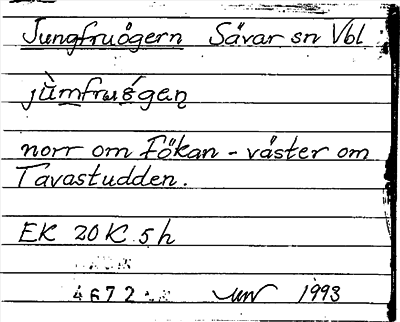 Jungfruågern Sävar sn Vbl
norr om Fökan - väster om
Tavastudden.
EK 20 K 5h
4672 1993